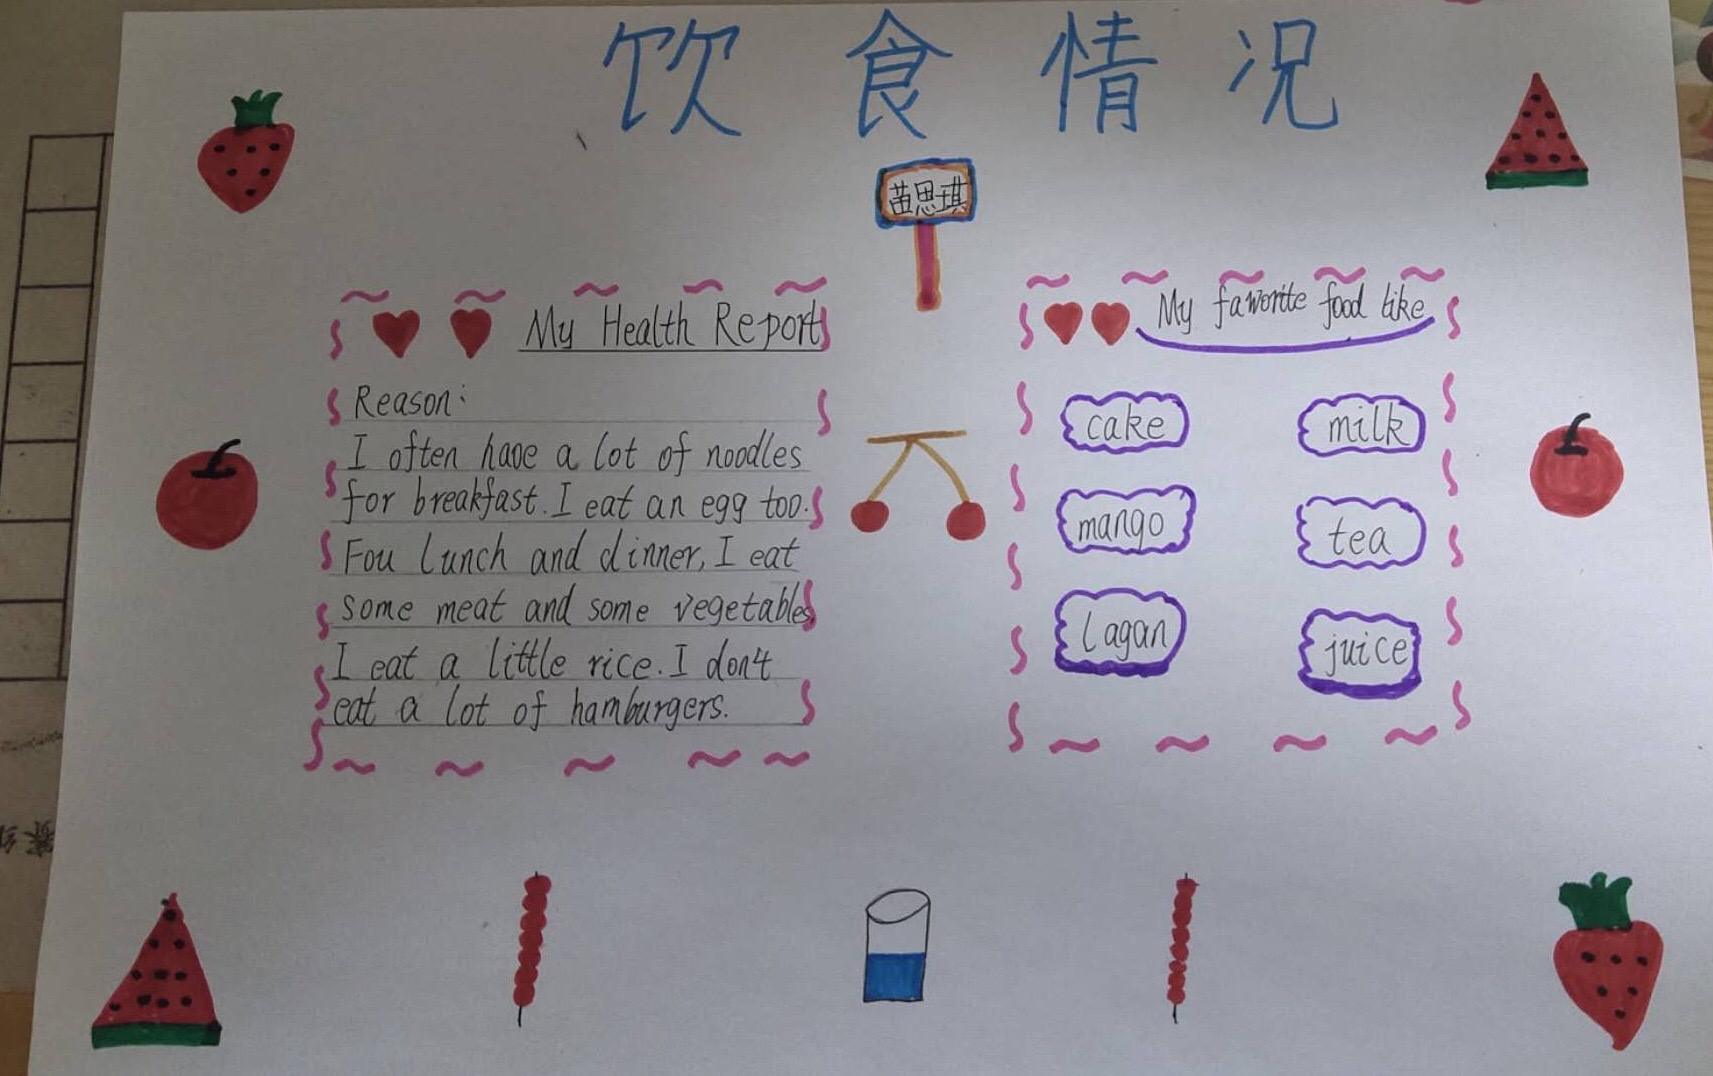 饮食情况
苗思琪
My Health Report
Reason:
I often have a lot of noodles
for breakfast. I eat an egg too.
Fou lunch and dinner, I eat
some meat and some vegetables
I eat a little rice. I don't
eat a lot of hamburgers.
My faworite food like
cake
milk
mango
tea
lagan
juice